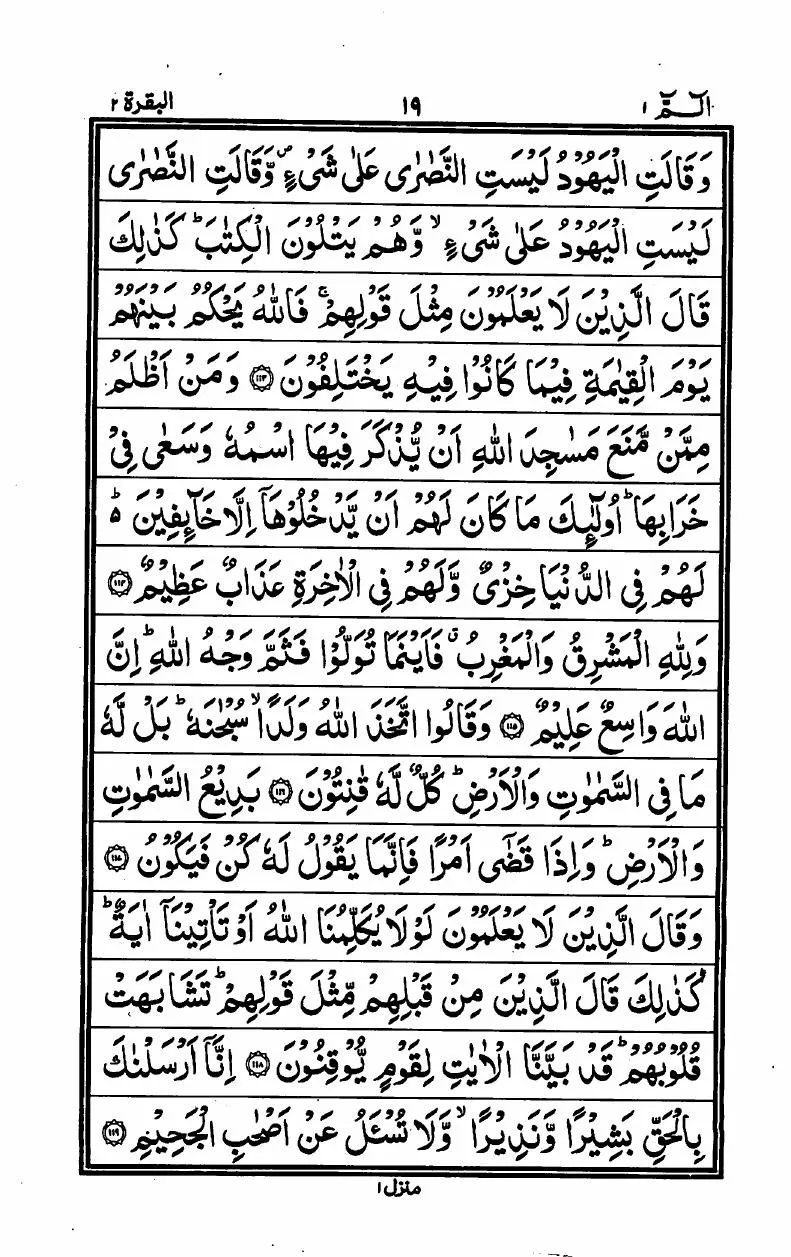 الٓمّٓ ١ ١٩ البقرة ٢
وَقَالَتِ الْيَهُوْدُ لَيْسَتِ النَّصٰرٰى عَلٰى شَیْءٍ ۪ وَّقَالَتِ النَّصٰرٰى
لَيْسَتِ الْيَهُوْدُ عَلٰى شَیْءٍ ۙ وَّهُمْ يَتْلُوْنَ الْكِتٰبَ ؕ كَذٰلِكَ
قَالَ الَّذِيْنَ لَا يَعْلَمُوْنَ مِثْلَ قَوْلِهِمْ ۚ فَاللّٰهُ يَحْكُمُ بَيْنَهُمْ
يَوْمَ الْقِيٰمَةِ فِيْمَا كَانُوْا فِيْهِ يَخْتَلِفُوْنَ ۝١١٣ وَمَنْ اَظْلَمُ
مِمَّنْ مَّنَعَ مَسٰجِدَ اللّٰهِ اَنْ يُّذْكَرَ فِيْهَا اسْمُهٗ وَسَعٰى فِیْ
خَرَابِهَا ؕ اُولٰٓئِكَ مَا كَانَ لَهُمْ اَنْ يَّدْخُلُوْهَاۤ اِلَّا خَآئِفِيْنَ ؕ۬
لَهُمْ فِی الدُّنْيَا خِزْیٌ وَّلَهُمْ فِی الْاٰخِرَةِ عَذَابٌ عَظِيْمٌ ۝١١٤
وَلِلّٰهِ الْمَشْرِقُ وَالْمَغْرِبُ ۗ فَاَيْنَمَا تُوَلُّوْا فَثَمَّ وَجْهُ اللّٰهِ ؕ اِنَّ
اللّٰهَ وَاسِعٌ عَلِيْمٌ ۝١١٥ وَقَالُوا اتَّخَذَ اللّٰهُ وَلَدًا ۙ سُبْحٰنَهٗ ؕ بَلْ لَّهٗ
مَا فِی السَّمٰوٰتِ وَالْاَرْضِ ؕ كُلٌّ لَّهٗ قٰنِتُوْنَ ۝١١٦ بَدِيْعُ السَّمٰوٰتِ
وَالْاَرْضِ ؕ وَاِذَا قَضٰۤى اَمْرًا فَاِنَّمَا يَقُوْلُ لَهٗ كُنْ فَيَكُوْنُ ۝١١٧
وَقَالَ الَّذِيْنَ لَا يَعْلَمُوْنَ لَوْلَا يُكَلِّمُنَا اللّٰهُ اَوْ تَاْتِيْنَاۤ اٰيَةٌ ؕ
كَذٰلِكَ قَالَ الَّذِيْنَ مِنْ قَبْلِهِمْ مِّثْلَ قَوْلِهِمْ ؕ تَشَابَهَتْ
قُلُوْبُهُمْ ؕ قَدْ بَيَّنَّا الْاٰيٰتِ لِقَوْمٍ يُّوْقِنُوْنَ ۝١١٨ اِنَّاۤ اَرْسَلْنٰكَ
بِالْحَقِّ بَشِيْرًا وَّنَذِيْرًا ۙ وَّلَا تُسْئَلُ عَنْ اَصْحٰبِ الْجَحِيْمِ ۝١١٩
منزل ١